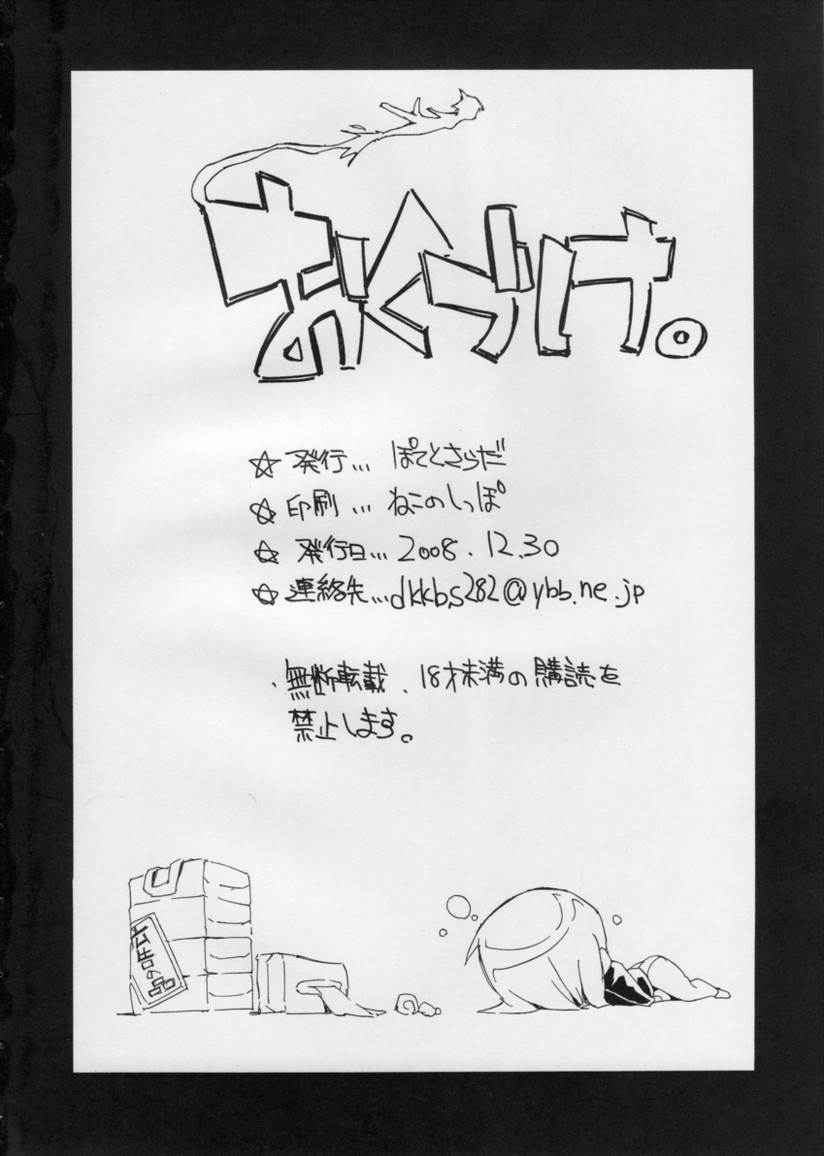 おくづけ。
☆発行…ぽてとさらだ
☆印刷…ねこのしっぽ
☆発行日…2008.12.30
☆連絡先…dkkbs282@ybb.ne.jp
・無断転載、18才未満の購読を
禁止します。
の品